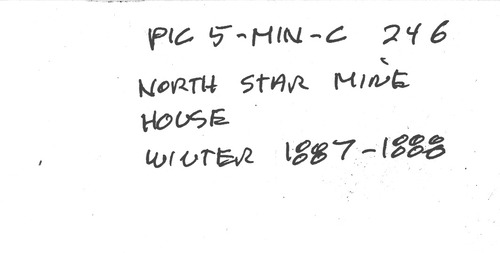 PIC 5-MIN-C 246
NORTH STAR MINE
HOUSE
WINTER 1887-1888